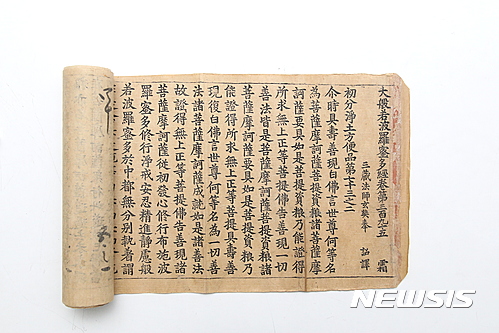 大般若波羅蜜多經卷第三百九十五 霜
三藏法師玄奘奉 詔譯
初分淨土方便品第七十三之二
尒時具壽善現白佛言世尊何等名
為菩薩摩訶薩菩提資粮諸菩薩摩
訶薩要具如是菩提資粮乃能證得
所求無上正等菩提佛告善現一切
善法皆是菩薩摩訶薩菩提資粮諸
菩薩摩訶薩要具如是菩提資粮乃
能證得所求無上正等菩提具壽善
現復白佛言世尊何等名為一切善
法諸菩薩摩訶薩成就如是諸善法
故證得無上正等菩提佛告善現諸
菩薩摩訶薩從初發心修行布施波
羅蜜多修行淨戒安忍精進靜慮般
若波羅蜜多於中都無分別執著謂
NEWSIS